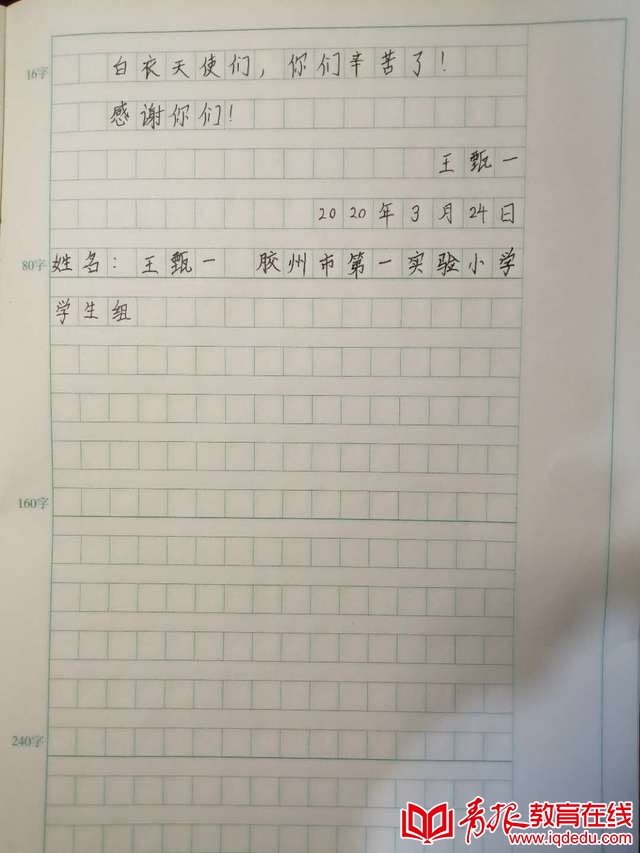 16字
白衣天使们，你们辛苦了！
感谢你们！
王甄一
2020年3月24日
80字
姓名：王甄一 胶州市第一实验小学
学生组
160字
240字
青报教育在线
www.iqdedu.com